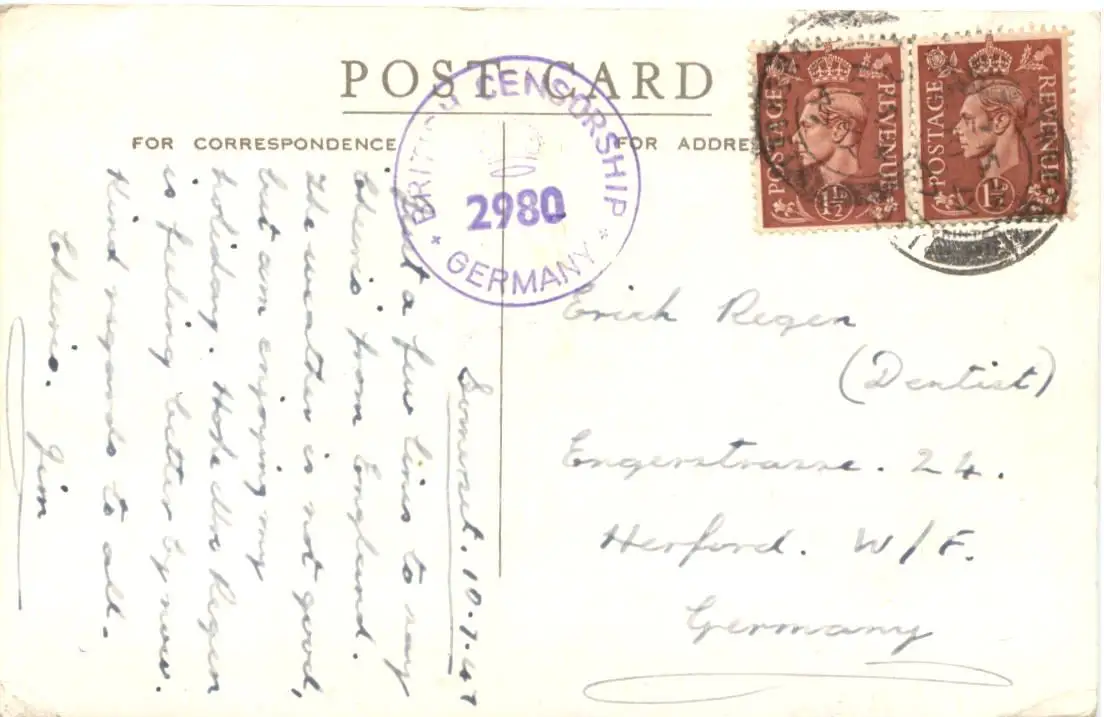 POST CARD
FOR CORRESPONDENCE
FOR ADDRESS
BRITISH CENSORSHIP
2980
* GERMANY *
POSTAGE REVENUE
1½
POSTAGE REVENUE
1½
Somerset. 10-7-47
Just a few lines to say
cheerio from England.
The weather is not good,
but am enjoying my
holiday. Hope Mr Regen
is feeling better by now.
Kind regards to all.
Cheerio. Jim
Erich Regen
(Dentist)
Engerstrasse. 24.
Herford. W/F.
Germany